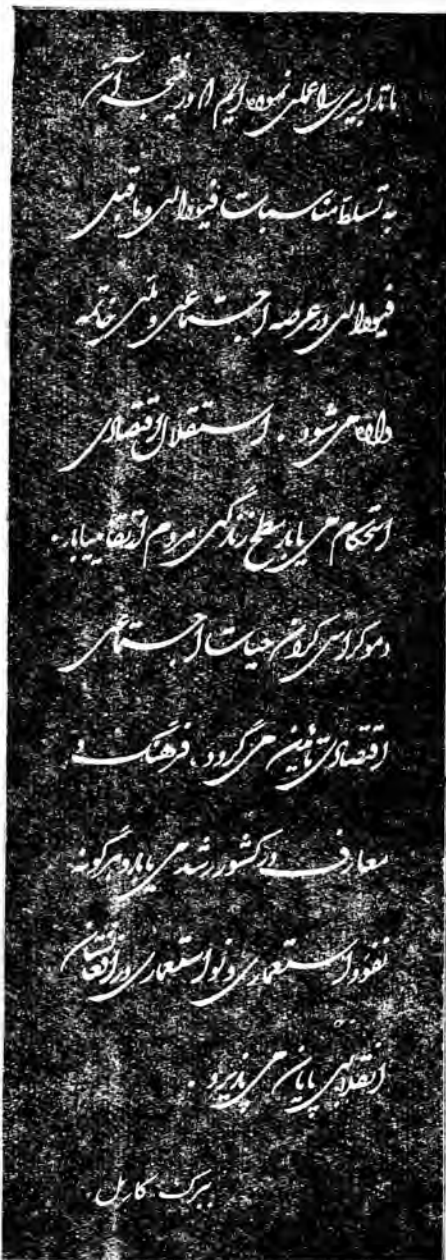 ما تدابیری را عملی نموده ایم که در نتیجه آن
به تسلط مناسبات فیودالی و ماقبل
فیودالی در عرصه اجتماعی و ملی خاتمه
داده می شود . استقلال اقتصادی
استحکام می یابد سطح زندگی مردم ارتقا میابد .
دموکراسی کردن حیات اجتماعی
اقتصادی تامین می گردد ، فرهنگ و
معارف در کشور رشد می یابد و هرگونه
نفوذ استعماری و نو استعماری در افغانستان
انقلابی پایان می پذیرد .
ببرک کارمل